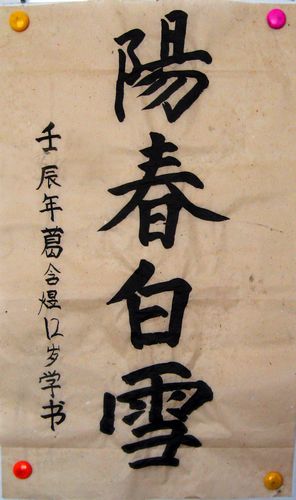 陽春白雪
壬辰年葛含煜12岁学书